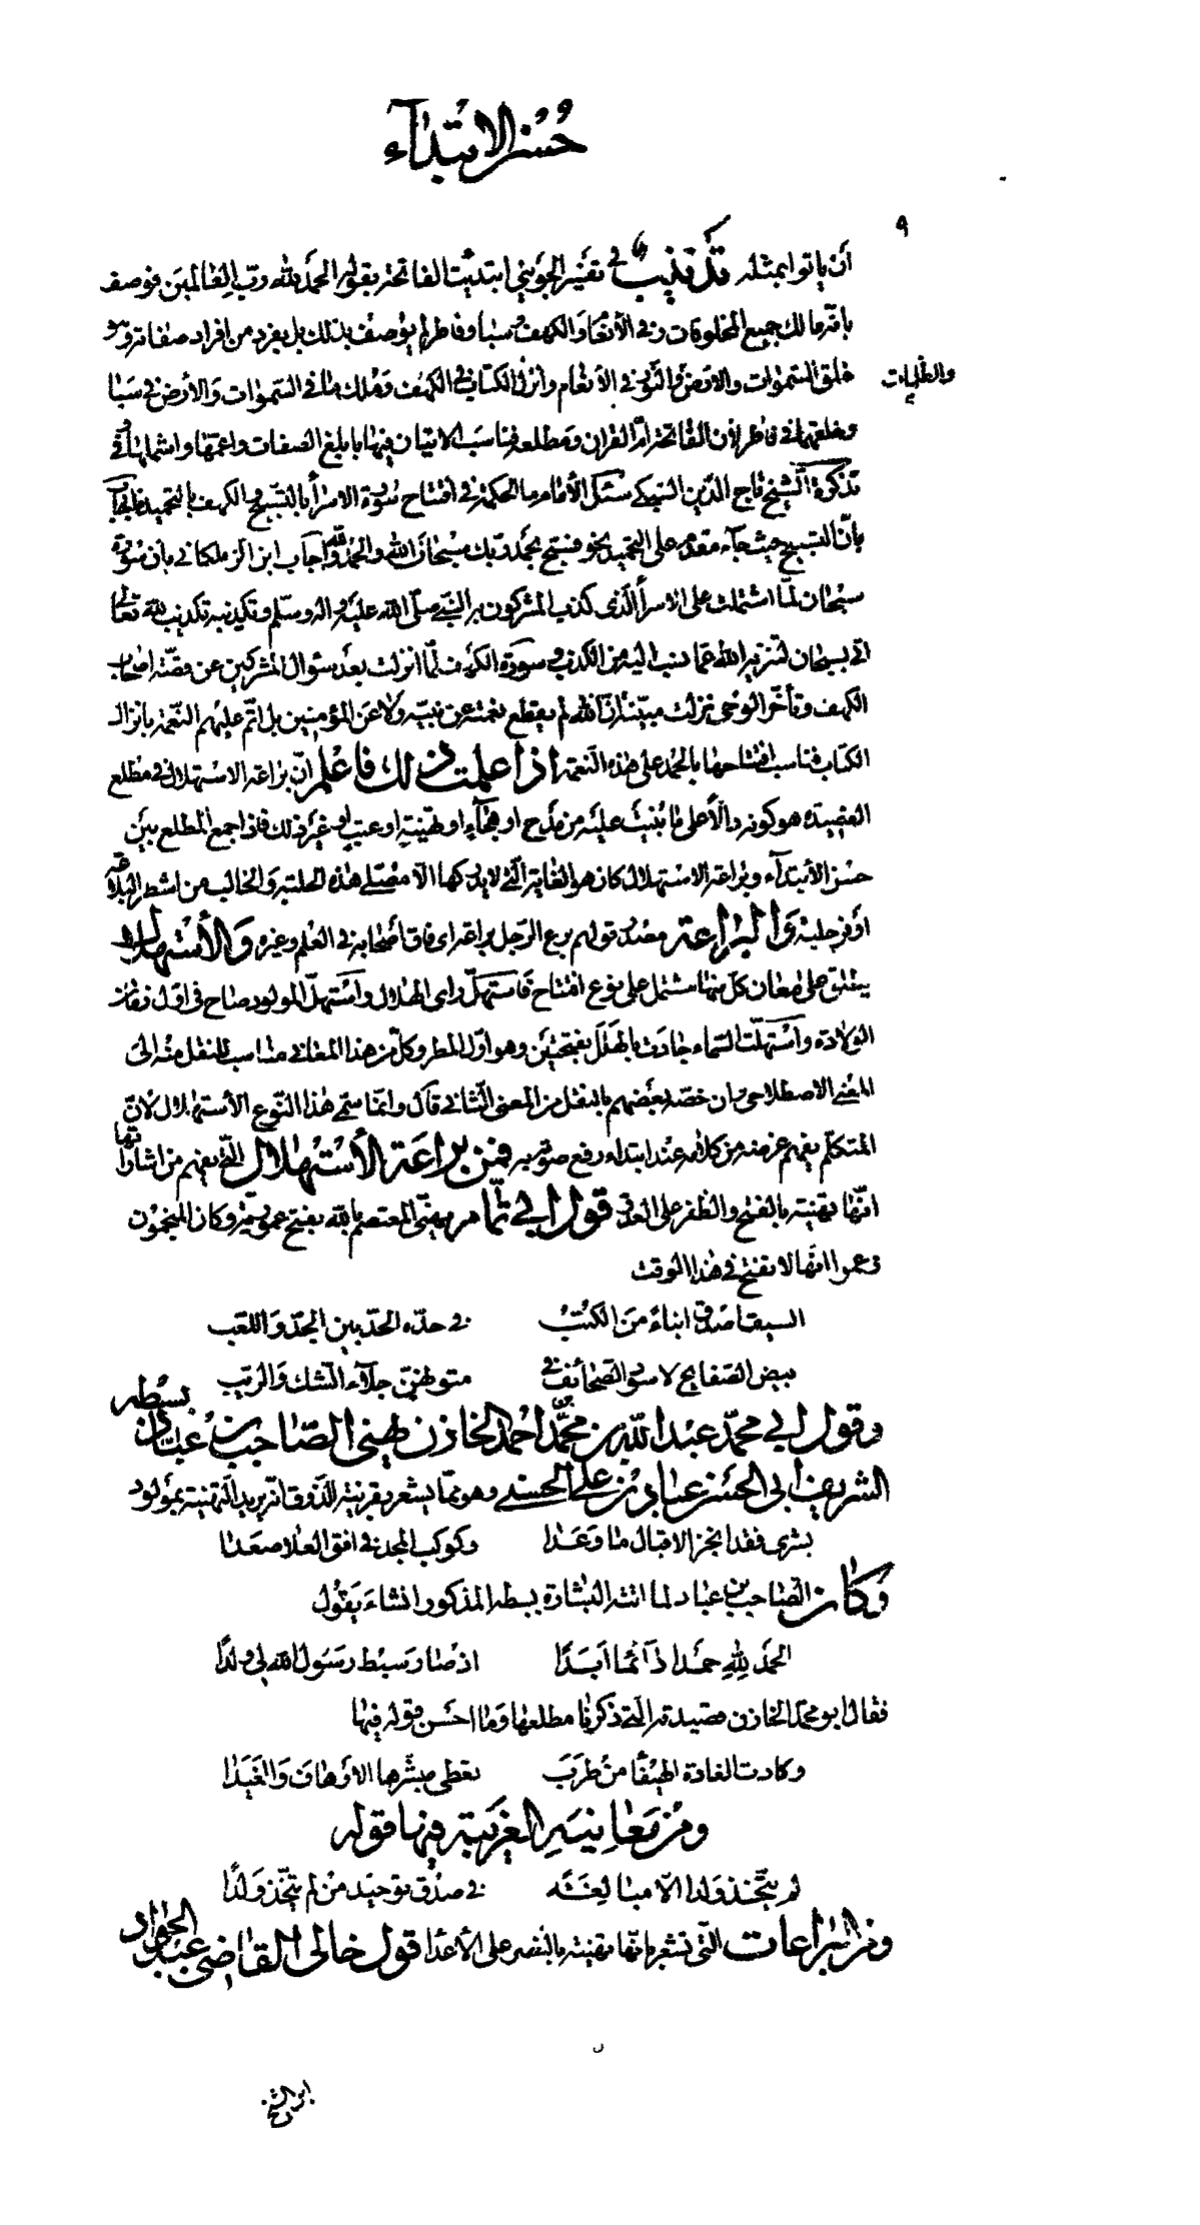 حسن الابتداء
٩
أن ياتوا بمثله تذنيب في تفسير الجويني ابتدئت الفاتحة بقوله الحمد لله رب العالمين فوصف
بانه مالك جميع المخلوقات وفي الأنعام والكهف وسبا وفاطر لم يوصف بذلك بل بفرد من افراد صفاته وهو
خلق السموات والارض والنور في الأنعام وأنزل الكتاب في الكهف وملك ما في السموات والأرض في سبا
والظلمات
وخلقهما في فاطر لأن الفاتحة ام القران ومطلعه فناسب الاتيان فيها بابلغ الصفات واعمها واشملها وفي
تذكرة الشيخ تاج الدين السبكي سئل الأمام ما الحكمة في افتتاح سورة الاسرأ بالتسبيح والكهف بالتحميد فاجاب
بأن التسبيح حيث جآء مقدم على التحميد نحو فسبح بحمد ربك سبحان الله والحمد لله وأجاب ابن الزملكاني بأن سورة
سبحان لما اشتملت على الاسرأ الذي كذب المشركون به النبي صلى الله عليه واله وسلم وتكذيبه تكذيب لله تعالى
اتى بسبحان لتنزيه الله عما نسب اليه من الكذب وسورة الكهف لما انزلت بعد سؤال المشركين عن قصة اصحاب
الكهف وتأخر الوحي نزلت مبينة أن الله لم يقطع نعمته عن نبيه ولا عن المؤمنين بل اتم عليهم النعمة بانزال
الكتاب فناسب افتتاحها بالحمد على هذه النعمة اذا علمت ذلك فاعلم ان براعة الاستهلال في مطلع
القصيدة هو كونه دالا على ما بنيت عليه من مدح او هجآء او تهنية او عتب او غير ذلك فاذا جمع المطلع بين
حسن الأبتدآء وبراعة الاستهلال كان هو الغاية التي لا يدركها الا مصلي هذه الحلبة والحالب من اشطر البلاغة
اوفر حلبة والبراعة مصدر قولهم برع الرجل براعة اى فاق أصحابه في العلم وغيره والأستهلال
ينطلق على معان كل منها مشتمل على نوع افتتاح فاستهل راى الهلال واستهل المولود صاح في اول زمان
الولادة واستهلت السماء جادت بالهلل بفتحتين وهو اول المطر وكل من هذه المعاني مناسب للنقل منه الى
المعني الاصطلاحي وان خصه بعضهم بالنقل من المعنى الثاني قال وانما سمي هذا النوع الأستهلال لان
المتكلم يفهم غرضه من كلامه عند ابتداء رفع صوته به فمن براعة الأستهلال التي يفهم من اشاراتها
انها تهنية بالفتح والظفر على العدو قول ابي تمام يهني المعتصم بالله بفتح عمورية وكان المنجمون
زعموا انها لا تفتح في هذا الوقت
السيف اصدق انباء من الكتب في حده الحد بين الجد واللعب
بيض الصفايح لا سود الصحائف في متونهن جلآء الشك والريب
وقول ابي محمد عبد الله بن محمد بن احمد الخازن يهني الصاحب بن عباد بسبطه
الشريف ابي الحسن عباد بن علي الحسني وهو مما يشعر بقرينة الذوق انه يريد التهنية بمولود
بشرى فقد انجز الاقبال ما وعدا وكوكب المجد في افق العلا صعدا
وكان الصاحب بن عباد لما اتته البشارة بسبطه المذكور انشاء يقول
الحمد لله حمدا دآئما ابدا اذ صار سبط رسول الله لي ولدا
فقال ابو محمد الخازن قصيدته التي ذكرنا مطلعها وما احسن قوله فيها
وكادت الغادة الهيفا من طرب تعطي مبشرها الارهاف والغيدا
ومن معانيه الغريبة فيها قوله
لم يتخذ ولدا الا مبالغة في صدق توحيد من لم يتخذ ولدا
ومن البراعات التي تشعر بانها تهنية بالنصر على الأعدا قول خالي القاضي عبد الجواد
ابن الشيخ